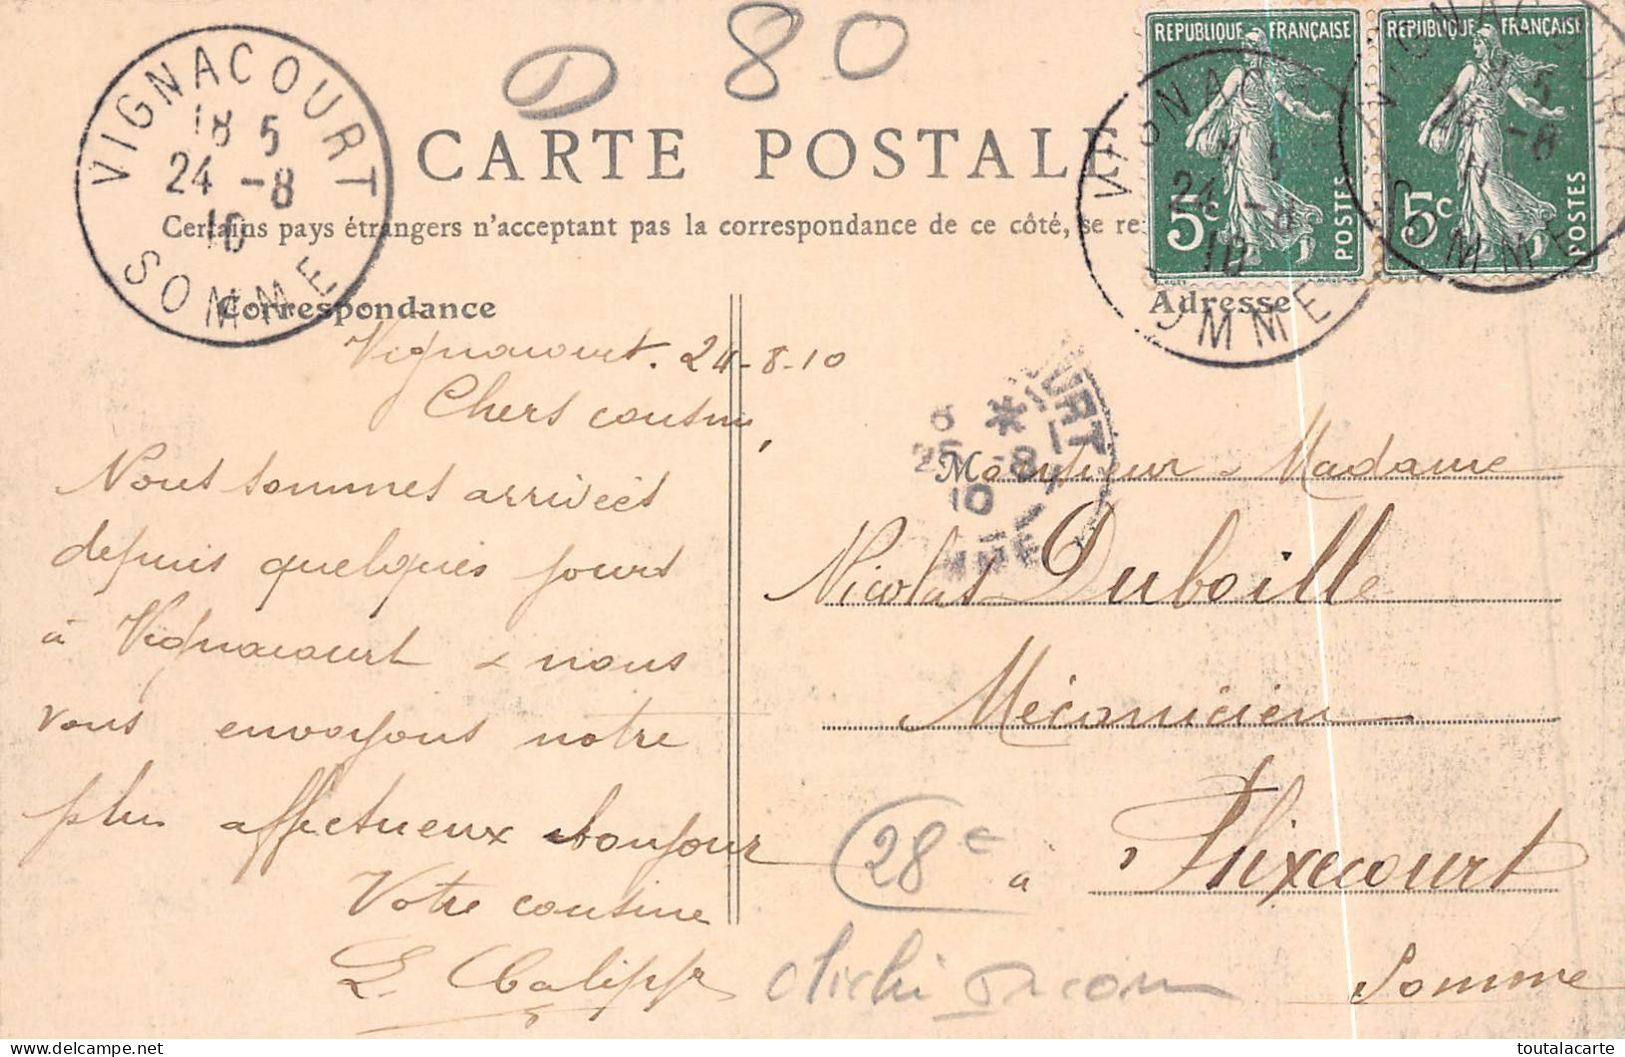 D 80
VIGNACOURT
18 5
24 -8
10
SOMME
REPUBLIQUE FRANÇAISE
5c
POSTES
REPUBLIQUE FRANÇAISE
5c
POSTES
VIGNACOURT
24 -8
10
SOMME
CARTE POSTALE
Certains pays étrangers n'acceptant pas la correspondance de ce côté, se re
Correspondance
Adresse
Vignacourt. 24-8-10
Chers cousins,
Nous sommes arrivées
depuis quelques jours
à Vignacourt & nous
vous envoyons notre
plus affectueux bonjour
Votre cousine
25 -8
10
Monsieur & Madame
Nicolas Duboille
Mécanicien
à Flixecourt
Somme
28 c
toutalacarte